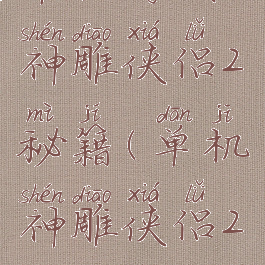 shén diāo xiá lǚ
神雕侠侣2
mì jí dān jī
秘籍(单机
shén diāo xiá lǚ
神雕侠侣2